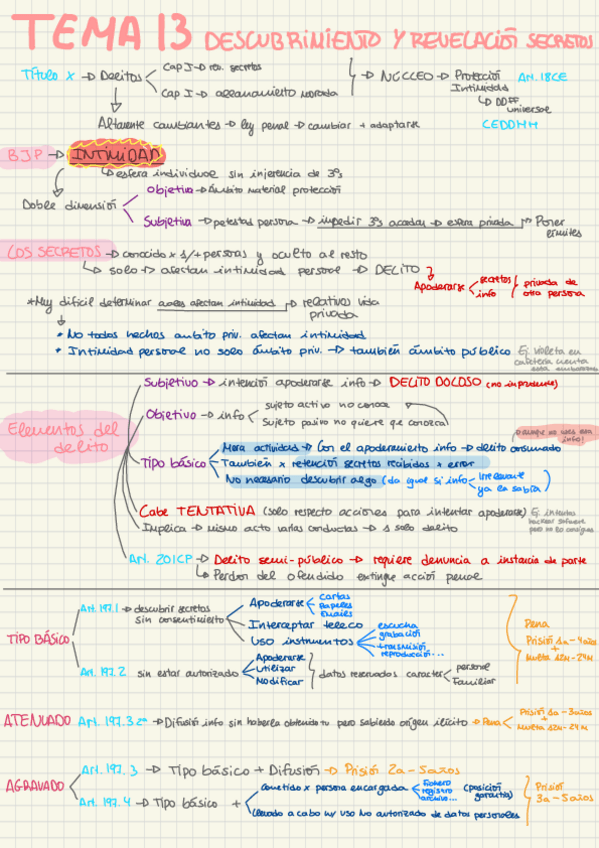 TEMA 13 DESCUBRIMIENTO Y REVELACIÓN SECRETOS
Título X → Delitos
Cap I → rev. secretos
Cap I → allanamiento morada
→ NÚCLEO → Protección Intimidad
AN. 18CE
→ DDFF universal
CEDDHH
Altamente cambiantes → ley penal → cambiar + adaptarse
BJP → INTIMIDAD
→ esfera individual sin injerencia de 3ºs
Doble dimensión
Objetiva → Ámbito material protección
Subjetiva → potestad persona → impedir 3ºs accedan → esfera privada → Poner límites
LOS SECRETOS → conocido x 1/+ personas y oculto al resto
→ solo afectan intimidad personal → DELITO
Apoderarse
secretos
info
privada de otra persona
*Muy difícil determinar afectan intimidad → relativos vida privada
* No todos hechos ámbito priv. afectan intimidad
* Intimidad personal no solo ámbito priv. → también ámbito público
Ej: Violeta en cafetería cuenta está embarazada
Elementos del delito
Subjetivo → intención apoderarse info → DELITO DOLOSO (no imprudente)
Objetivo → info
sujeto activo no conoce
Sujeto pasivo no quiere que conozca
Tipo básico
Mera actividad → Con el apoderamiento info → delito consumado
¡Aunque no uses esa info!
También x retención secretos recibidos x error
No necesario descubrir algo (da igual si info
irrelevante
ya la sabía)
Cabe TENTATIVA (solo respecto acciones para intentar apoderarse)
Ej. intentas hackear software pero no lo consigues
Implica → mismo acto varias conductas → 1 solo delito
Art. 201CP → Delito semi-público → requiere denuncia a instancia de parte
→ Perdón del ofendido extingue acción penal
TIPO BÁSICO
Art. 197.1 → descubrir secretos sin consentimiento
Apoderarse
cartas
Papeles
Emails
Interceptar teleco
Uso instrumentos
escucha
grabación
transmisión
reproducción...
Art. 197.2 sin estar autorizado
Apoderarse
Utilizar
Modificar
datos reservados carácter
personal
Familiar
Pena
Prisión 1a - 4años
+
Multa 12M - 24M
ATENUADO Art. 197.3 2º → Difusión info sin haberla obtenido tu pero sabiendo origen ilícito → Pena
Prisión 1a - 3años
+
Multa 12M - 24M
AGRAVADO
Art. 197.3 → Tipo básico + Difusión → Prisión 2a - 5años
Art. 197.4 → Tipo básico +
Cometido x persona encargada
fichero
registro
archivo...
(posición garantía)
Llevado a cabo uso No autorizado de datos personales
Prisión
3a - 5años